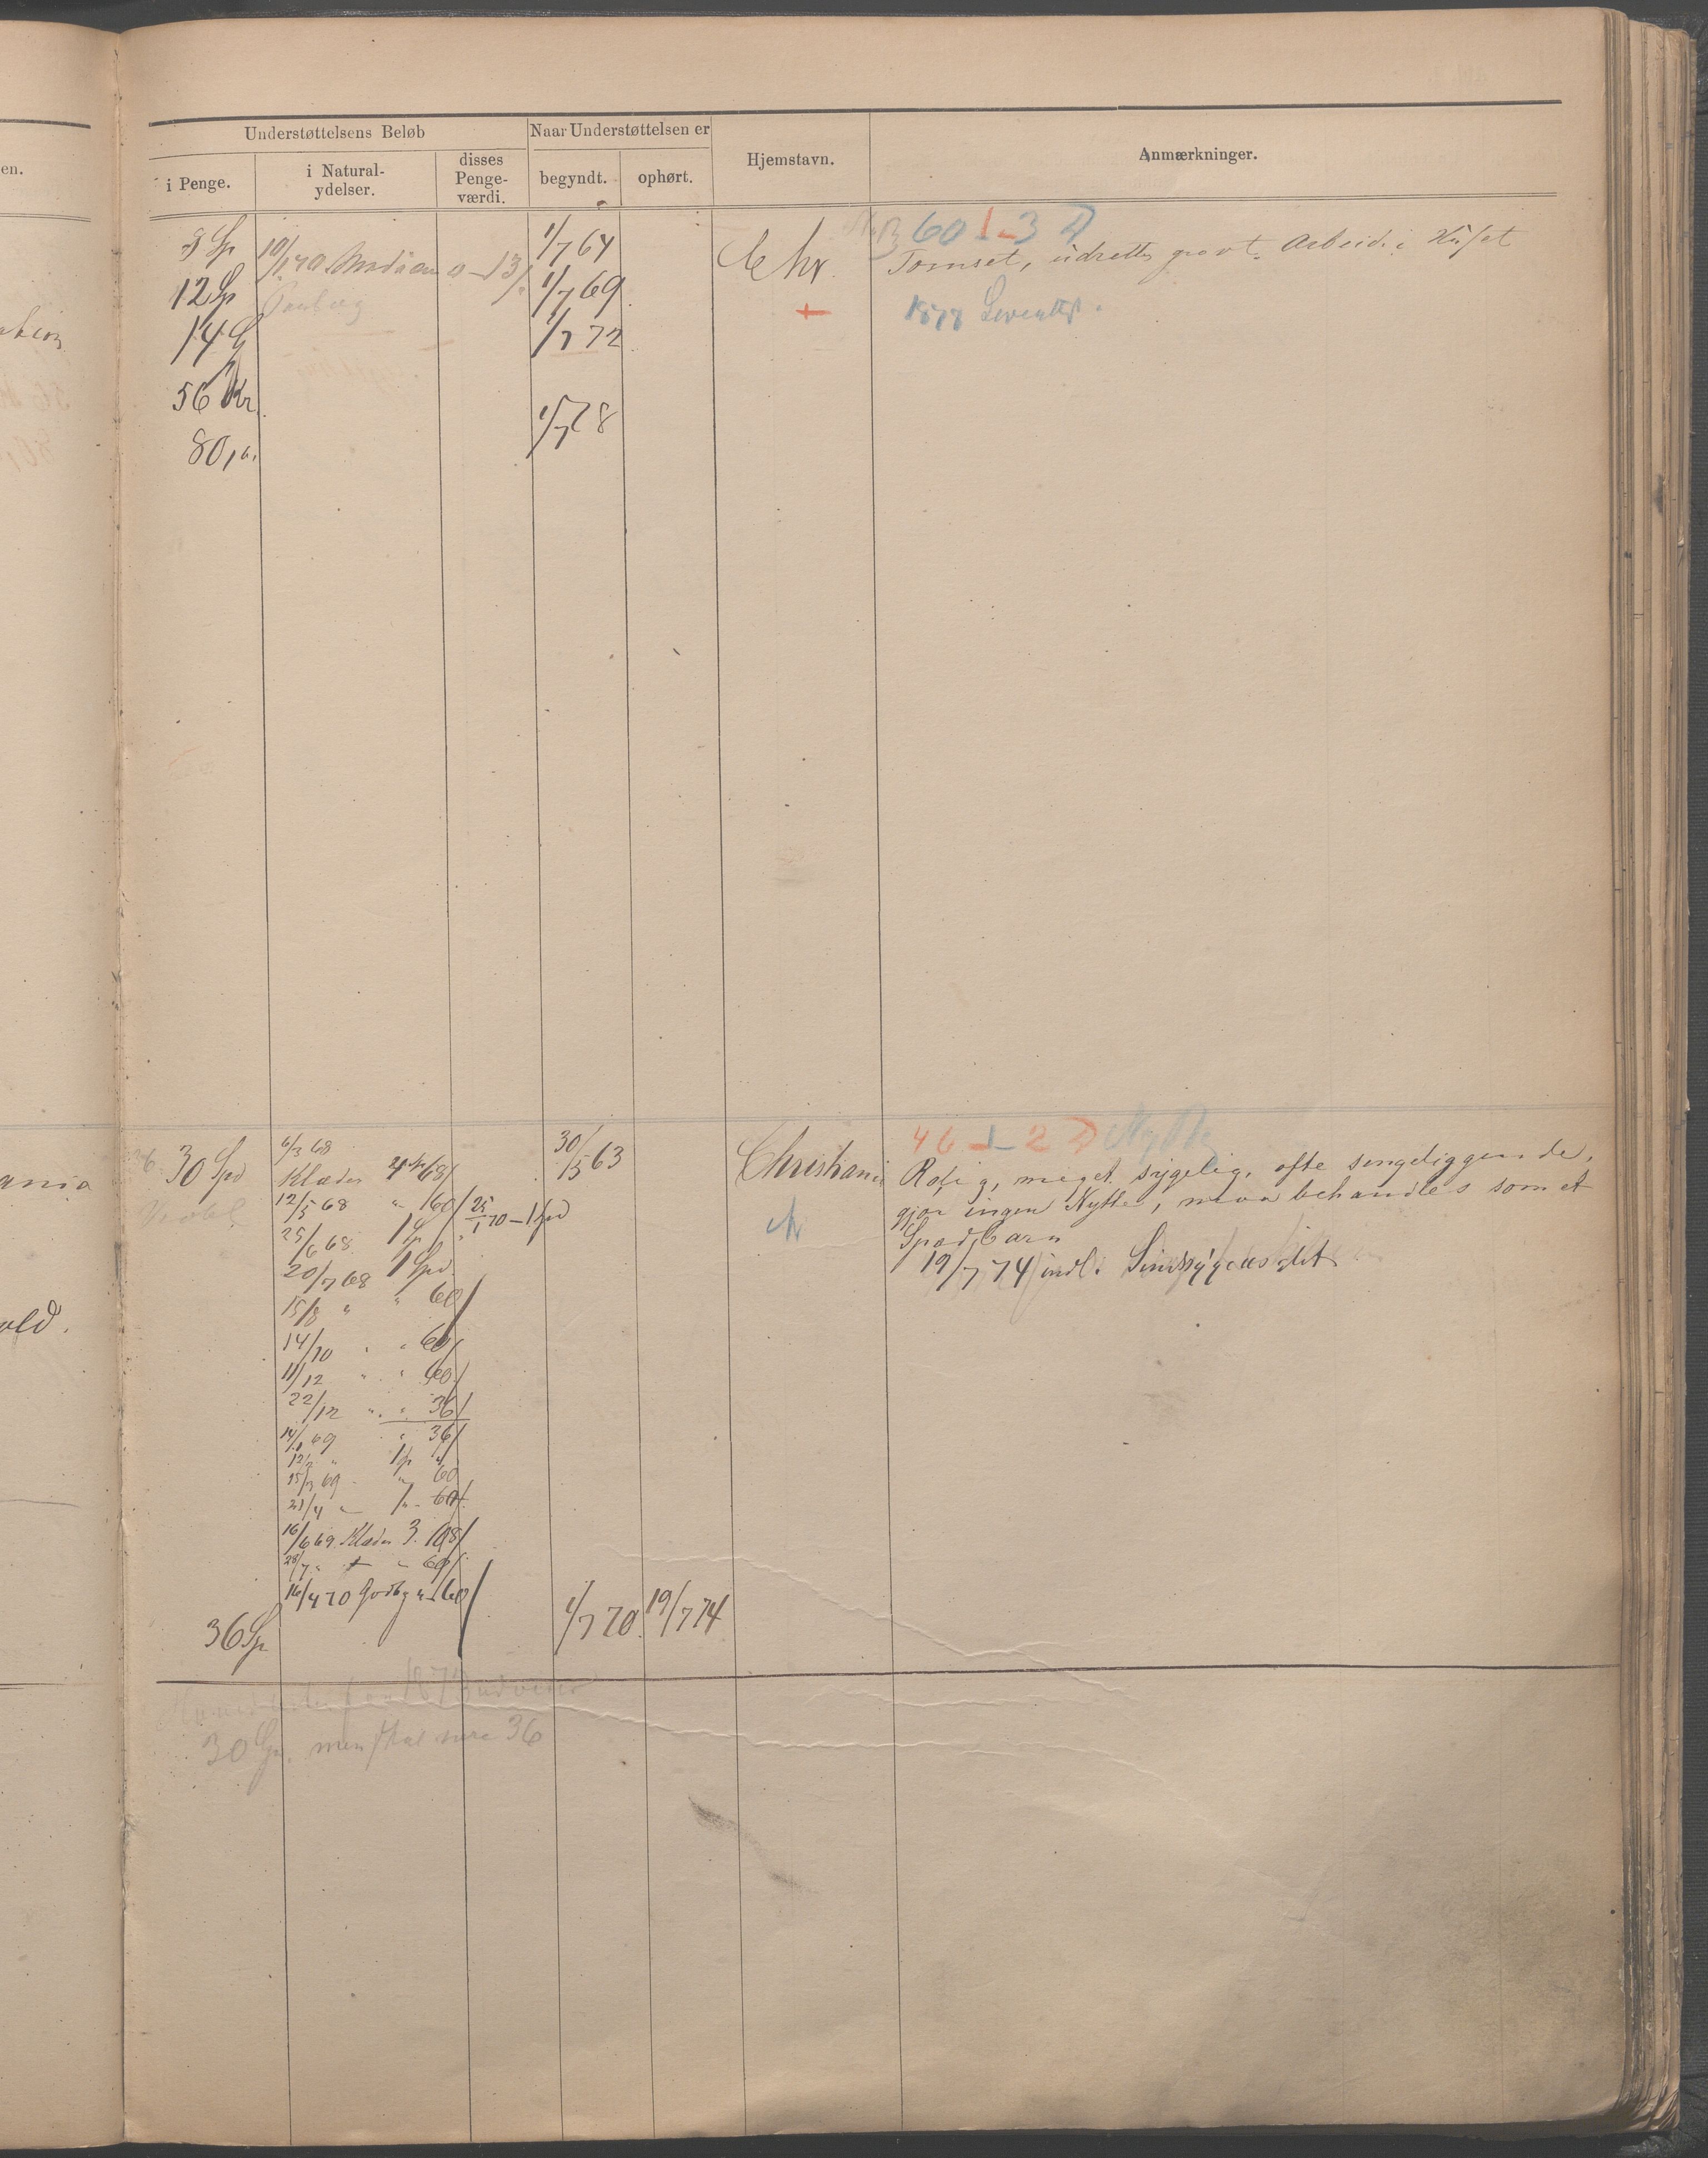 en.
Understøttelsens Beløb
Naar Understøttelsen er
Hjemstavn.
Anmærkninger.
i Penge.
i Natural-
ydelser.
disses
Penge-
værdi.
begyndt.
ophørt.
60 1-3
Chr.
1/7 64
Tomset, udretter grovt Arbeide i Huset
12 Sp
1/7 69
14 Sp
1/7 72
1878
56 Kr.
1/7 78
80,
46 1-2 Nytte
30 Spd
6/3 68
30/5 63
Christiania
Rolig, meget sygelig, ofte sengeliggende,
Klæder
gjør ingen Nytte, maa behandles som et
12/5 68 " 60/
25/1 70 - 1 Spd
Spædbarn
25/6 68 1 Sp
19/7 74 indl. i Sindssygeasylet
20/7 68 1 Spd
15/8 " " 60/
14/10 " " 60/
11/12 " " 60/
22/12 " " 36/
14/1 69 " 36/
12/2 "
15/3 69 " 60
21/4 "
16/6 69. Klæder 3. 108/
28/7 " 60/
16/4 70
36 Sp
1/7 70
19/7 74
30 Sp. men skal være 36
ania
old.